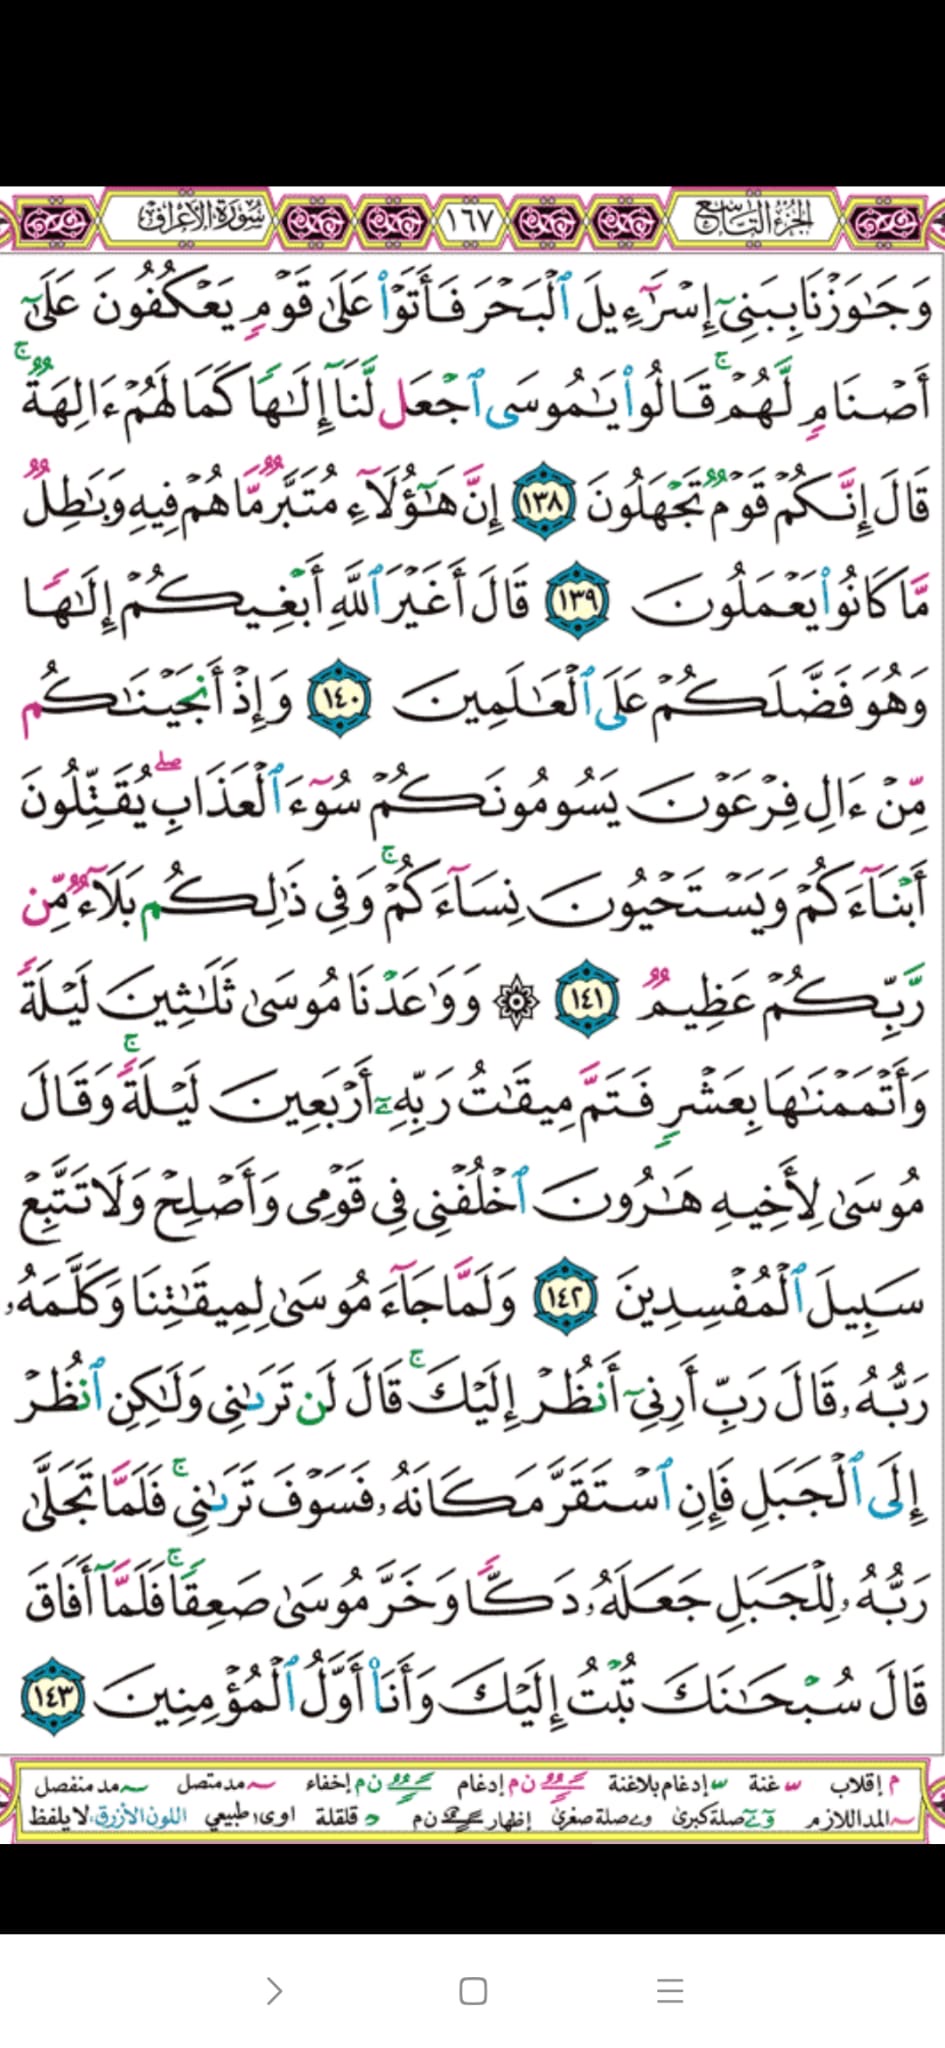 الجزء التاسع ١٦٧ سورة الأعراف
وَجَٰوَزْنَا بِبَنِىٓ إِسْرَٰٓءِيلَ ٱلْبَحْرَ فَأَتَوْا۟ عَلَىٰ قَوْمٍ يَعْكُفُونَ عَلَىٰٓ
أَصْنَامٍ لَّهُمْ ۚ قَالُوا۟ يَٰمُوسَى ٱجْعَل لَّنَآ إِلَٰهًا كَمَا لَهُمْ ءَالِهَةٌ ۚ
قَالَ إِنَّكُمْ قَوْمٌ تَجْهَلُونَ ١٣٨ إِنَّ هَٰٓؤُلَآءِ مُتَبَّرٌ مَّا هُمْ فِيهِ وَبَٰطِلٌ
مَّا كَانُوا۟ يَعْمَلُونَ ١٣٩ قَالَ أَغَيْرَ ٱللَّهِ أَبْغِيكُمْ إِلَٰهًا
وَهُوَ فَضَّلَكُمْ عَلَى ٱلْعَٰلَمِينَ ١٤٠ وَإِذْ أَنجَيْنَٰكُم
مِّنْ ءَالِ فِرْعَوْنَ يَسُومُونَكُمْ سُوٓءَ ٱلْعَذَابِ ۖ يُقَتِّلُونَ
أَبْنَآءَكُمْ وَيَسْتَحْيُونَ نِسَآءَكُمْ ۚ وَفِى ذَٰلِكُم بَلَآءٌ مِّن
رَّبِّكُمْ عَظِيمٌ ١٤١ ۞ وَوَٰعَدْنَا مُوسَىٰ ثَلَٰثِينَ لَيْلَةً
وَأَتْمَمْنَٰهَا بِعَشْرٍ فَتَمَّ مِيقَٰتُ رَبِّهِۦٓ أَرْبَعِينَ لَيْلَةً ۚ وَقَالَ
مُوسَىٰ لِأَخِيهِ هَٰرُونَ ٱخْلُفْنِى فِى قَوْمِى وَأَصْلِحْ وَلَا تَتَّبِعْ
سَبِيلَ ٱلْمُفْسِدِينَ ١٤٢ وَلَمَّا جَآءَ مُوسَىٰ لِمِيقَٰتِنَا وَكَلَّمَهُۥ
رَبُّهُۥ قَالَ رَبِّ أَرِنِىٓ أَنظُرْ إِلَيْكَ ۚ قَالَ لَن تَرَىٰنِى وَلَٰكِنِ ٱنظُرْ
إِلَى ٱلْجَبَلِ فَإِنِ ٱسْتَقَرَّ مَكَانَهُۥ فَسَوْفَ تَرَىٰنِى ۚ فَلَمَّا تَجَلَّىٰ
رَبُّهُۥ لِلْجَبَلِ جَعَلَهُۥ دَكًّا وَخَرَّ مُوسَىٰ صَعِقًا ۚ فَلَمَّآ أَفَاقَ
قَالَ سُبْحَٰنَكَ تُبْتُ إِلَيْكَ وَأَنَا۠ أَوَّلُ ٱلْمُؤْمِنِينَ ١٤٣
م إقلاب غنة إدغام بلاغنة ن م إدغام ن م إخفاء مد متصل مد منفصل
المد اللازم صلة كبرى صلة صغرى إظهار ن م قلقلة اوى طبيعي اللون الأزرق لا يلفظ